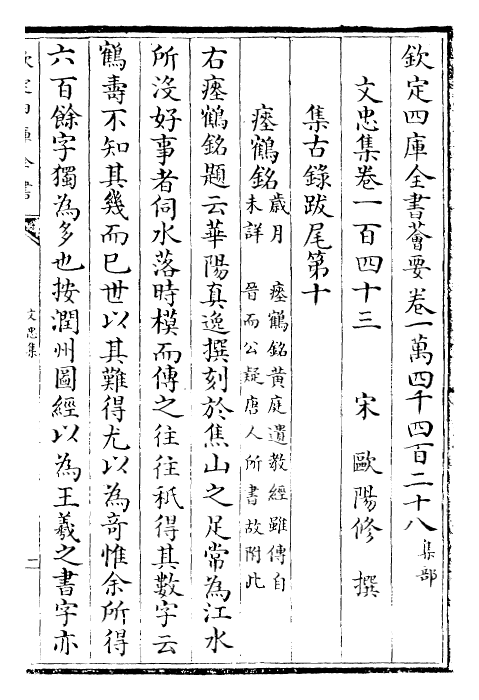 欽定四庫全書薈要卷一萬四千四百二十八 集部
文忠集卷一百四十三 宋 歐陽修 撰
集古錄跋尾第十
瘞鶴銘 歲月未詳 瘞鶴銘黄庭遺教經雖傳自晉而公疑唐人所書故附此
右瘞鶴銘題云華陽真逸撰刻於焦山之足常為江水
所沒好事者伺水落時模而傳之往往秪得其數字云
鶴壽不知其幾而已世以其難得尤以為奇惟余所得
六百餘字獨為多也按潤州圖經以為王羲之書字亦
欽定四庫全書
文忠集
一